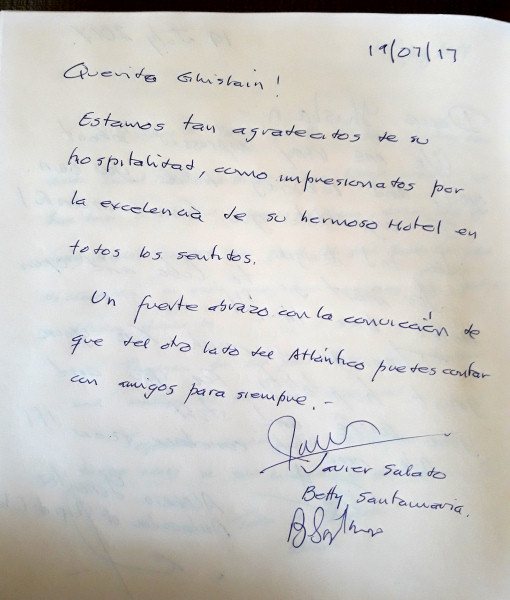 19/07/17
Querido Ghislain!
Estamos tan agradecidos de su
hospitalidad, como impresionados por
la excelencia de su hermoso Hotel en
todos los sentidos.
Un fuerte abrazo con la convicción de
que del otro lado del Atlántico puedes contar
con amigos para siempre.-
Javier Salado
Betty Santamaria.